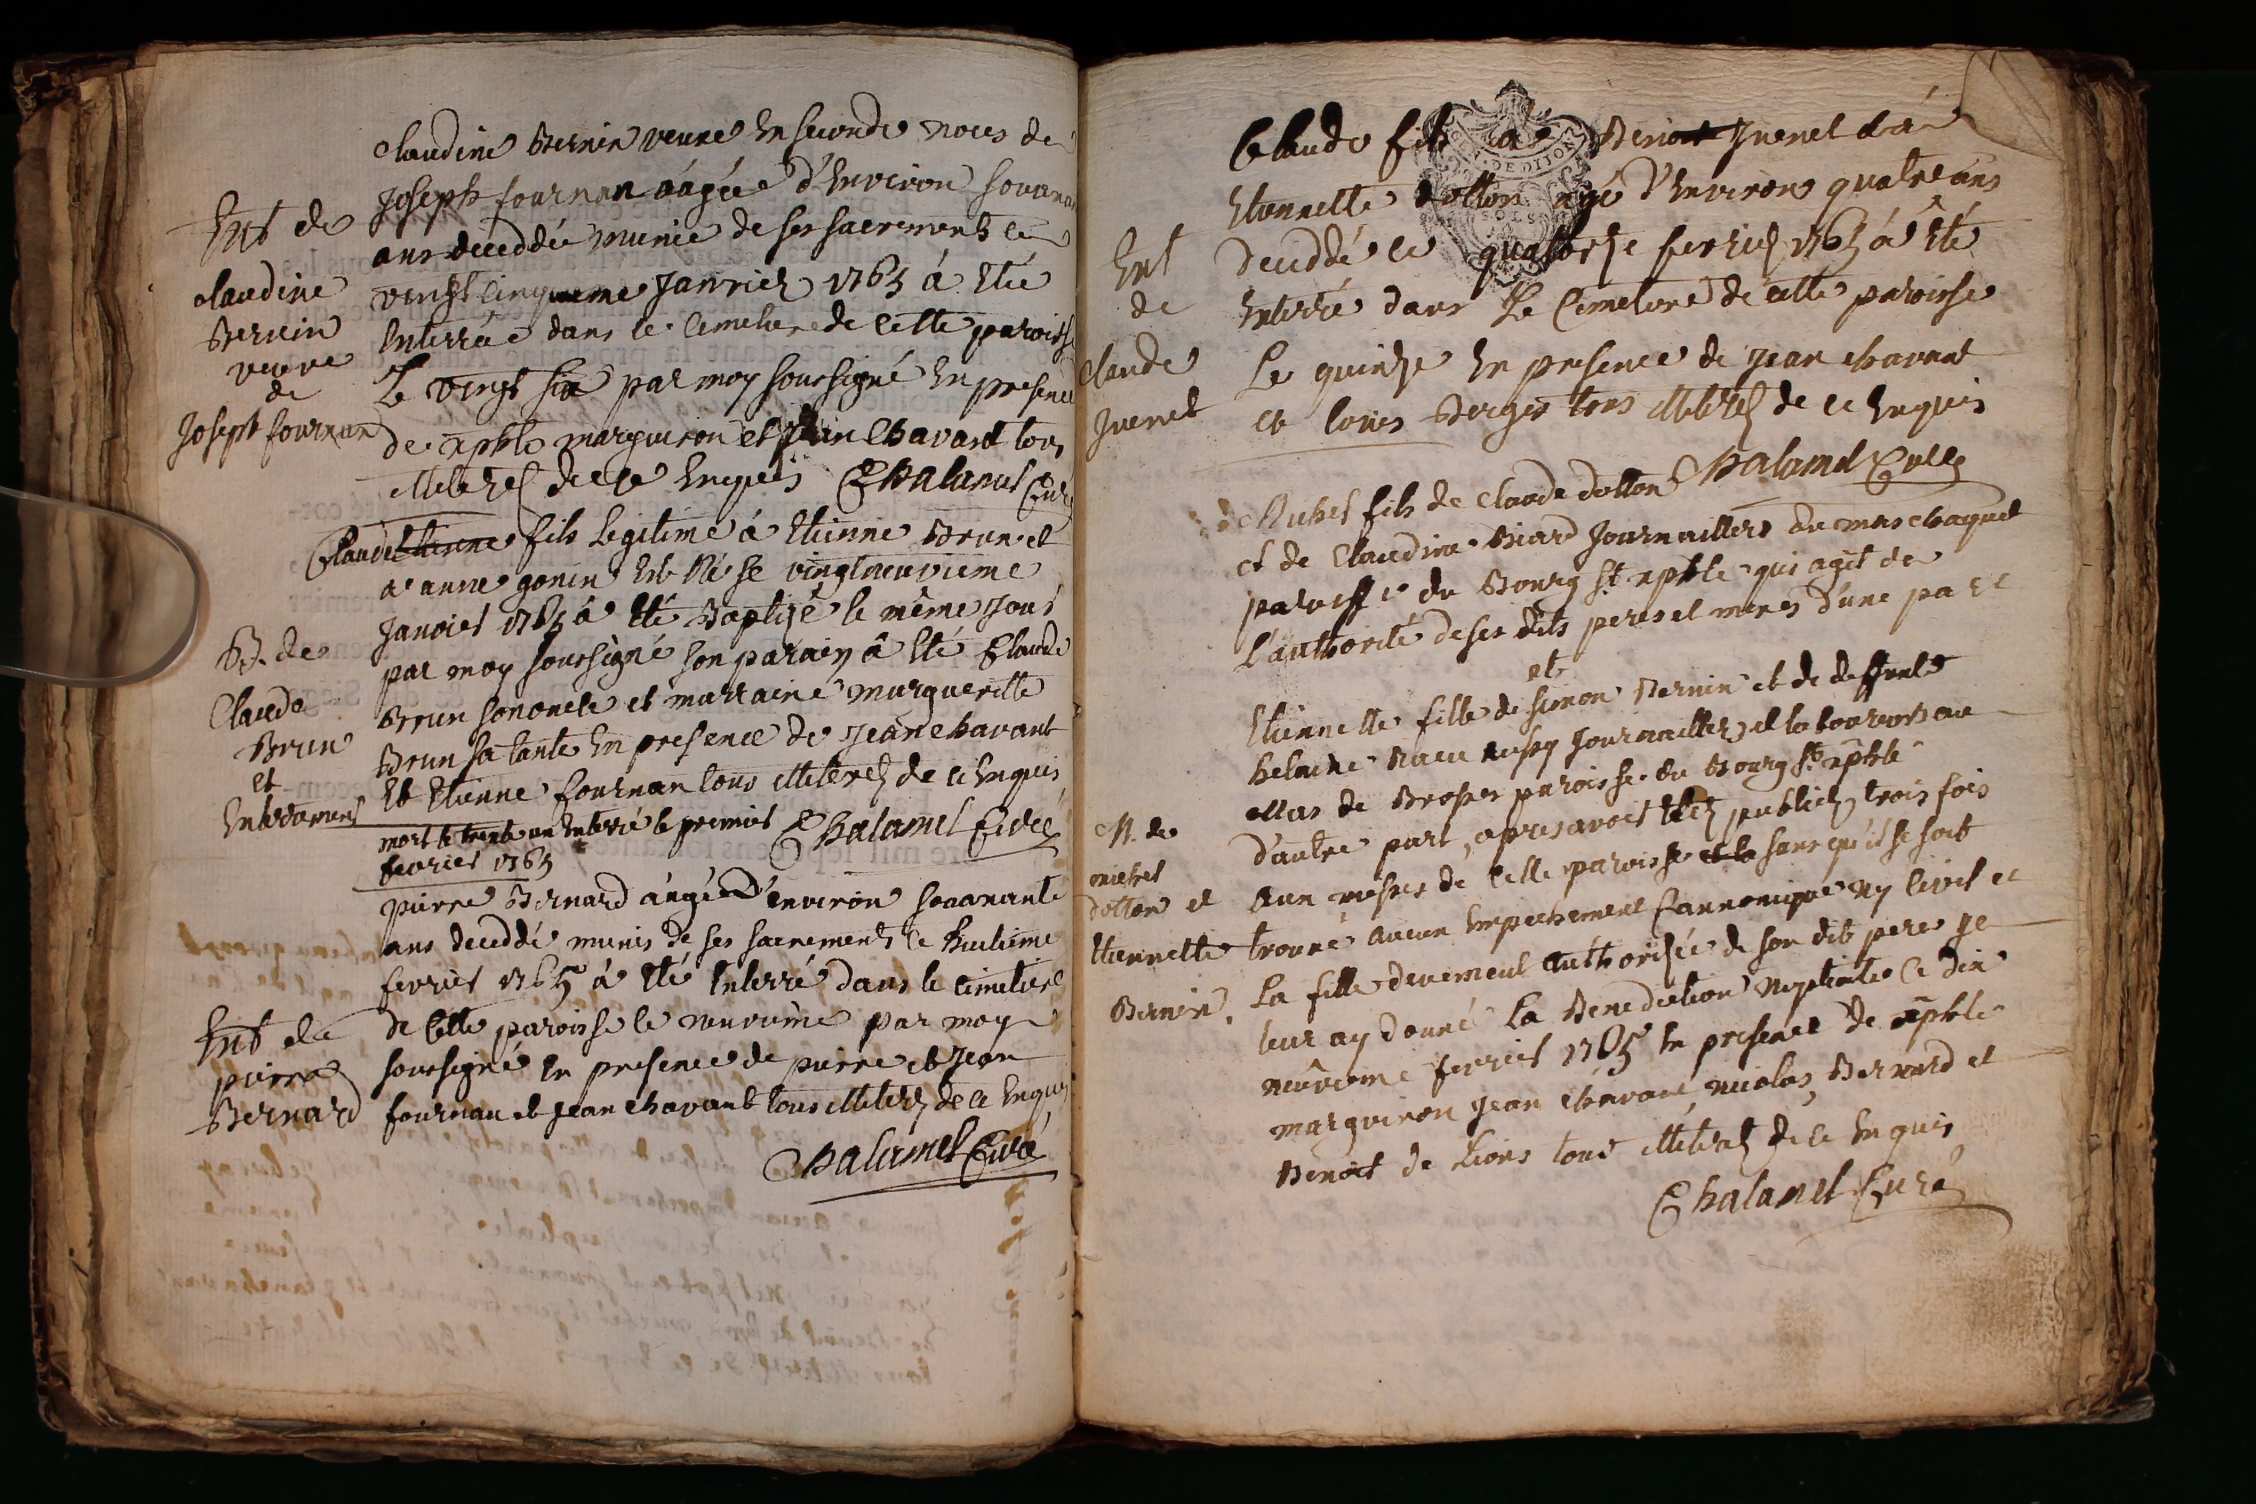 Claudine Bernin veuve En seconde noces de
Joseph fournan áagée d'Environ soixante
ans deceddée munie de ses sacrements le
vingt cinqueme Janvier 1765 á Eté
Enterrée dans le cimetiere de cette paroisse
Le vingt six par moy soussigné En presence
de xphle marguiron et jean Chavant tous
illeterez de ce Enquis Chalamel Curé
Ent de
claudine
Bernin
veuve
de
Joseph fournan
Claude Etienne fils Legitime á Etienne Brun et
a anne gonin Est Né Le vingtneuvieme
Janvier 1765 á Eté Baptizé le même Jour
par moy soussigné son parain â Eté Claude
Brun son oncle et marraine margueritte
Brun sa tante En presence de Jean chavant
Et Etienne fournan tous illeterez de ce Enquis
Chalamel Curé
mort le trente un Enterré le premier
fevrier 1765
B. de
Claude
Brun
et
Enterrement
pierre Bernard áagée d'environ soixante
ans deceddé munis de ses sacrements le huitieme
fevrier 1765 á Eté Enterré dans le cimetiere
de Cette paroisse le neuvieme par moy
soussigné En presence de pierre et Jean
fournan et Jean chavant tous illeterez de ce Enquis
Chalamel Curé
Ent de
pierre
Bernard
Claude fils a Benoit Juenet & á
Etiennette dotton agé d'Environ quatre ans
deceddé le quatorze fevrier 1765 á Eté
Enterré dans Le Cimetiere de cette paroisse
Le quinze En presence de jean chavant
et louis Berger tous illeterez de ce Enquis
Chalamel Curé
Ent
de
Claude
Juenet
Michel fils de Claude dotton
et de Claudine Biard Journailliers du mas chaquet
paroisse du Bourg St xphle qui agit de
L'authorité de ses dits peres et meres d'une part
et
Etiennette fille de simon Bernin et de deffunte
helaine aussy Journaillier et laboureurs au
Mas de Brosses paroisse du Bourg St xphle
d'autre part, apres avoir Etez publiez trois fois
aux messes de Cette paroisse et la sans qu'il se soit
trouvé aucun Empechement Cannonique ny Civil et
La fille deuement authorizée de son dit pere je
leur ay donné La Benediction Nuptiale Ce dix
neûvieme fevrier 1765 En presence de xphle
marguiron jean chavant, nicolas Bernard et
Benoit de Lions tous illeterez de ce Enquis
Chalamel Curé
M. de
michel
dotton et
Etiennette
Bernin.